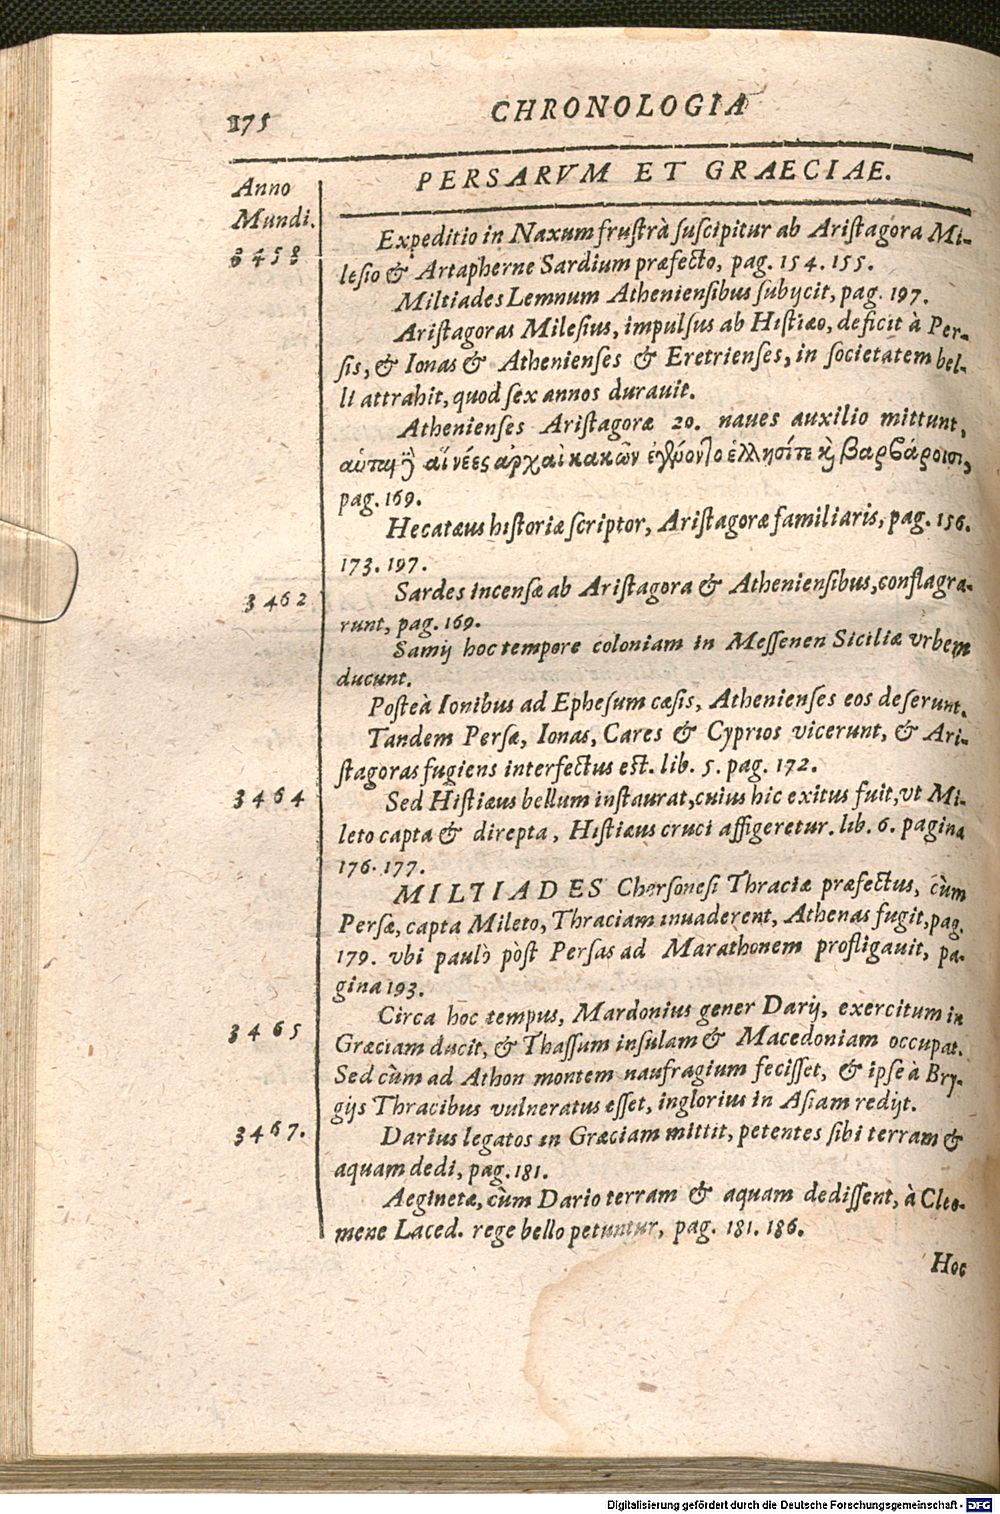 175
CHRONOLOGIA
PERSARVM ET GRAECIAE.
Anno
Mundi.
3458
Expeditio in Naxum frustrà suscipitur ab Aristagora Mi-
lesio & Artapherne Sardium præfecto, pag. 154. 155.
Miltiades Lemnum Atheniensibus subijcit, pag. 197.
Aristagoras Milesius, impulsus ab Histiæo, deficit à Per-
sis, & Ionas & Athenienses & Eretrienses, in societatem bel-
li attrahit, quod sex annos durauit.
Athenienses Aristagoræ 20. naues auxilio mittunt,
αἱ νέες ἀρχαὶ κακῶν ἐγένοντο ἕλλησί τε καὶ βαρβάροισι,
pag. 169.
Hecatæus historiæ scriptor, Aristagoræ familiaris, pag. 156.
173. 197.
3462
Sardes incensæ ab Aristagora & Atheniensibus, conflagra-
runt, pag. 169.
Samij hoc tempore coloniam in Messenen Siciliæ vrbem
ducunt.
Posteà Ionibus ad Ephesum cæsis, Athenienses eos deserunt.
Tandem Persæ, Ionas, Cares & Cyprios vicerunt, & Ari-
stagoras fugiens interfectus est. lib. 5. pag. 172.
3464
Sed Histiæus bellum instaurat, cuius hic exitus fuit, vt Mi-
leto capta & direpta, Histiæus cruci affigeretur. lib. 6. pagina
176. 177.
MILTIADES Chersonesi Thraciæ præfectus, cùm
Persæ, capta Mileto, Thraciam inuaderent, Athenas fugit, pag.
179. vbi paulò pòst Persas ad Marathonem profligauit, pa-
gina 193.
3465
Circa hoc tempus, Mardonius gener Darij, exercitum in
Græciam ducit, & Thassum insulam & Macedoniam occupat.
Sed cùm ad Athon montem naufragium fecisset, & ipse à Bry-
gijs Thracibus vulneratus esset, inglorius in Asiam redijt.
3467.
Darius legatos in Græciam mittit, petentes sibi terram &
aquam dedi, pag. 181.
Aeginetæ, cùm Dario terram & aquam dedissent, à Cleo-
mene Laced. rege bello petuntur, pag. 181. 186.
Hoc
Digitalisierung gefördert durch die Deutsche Forschungsgemeinschaft - DFG